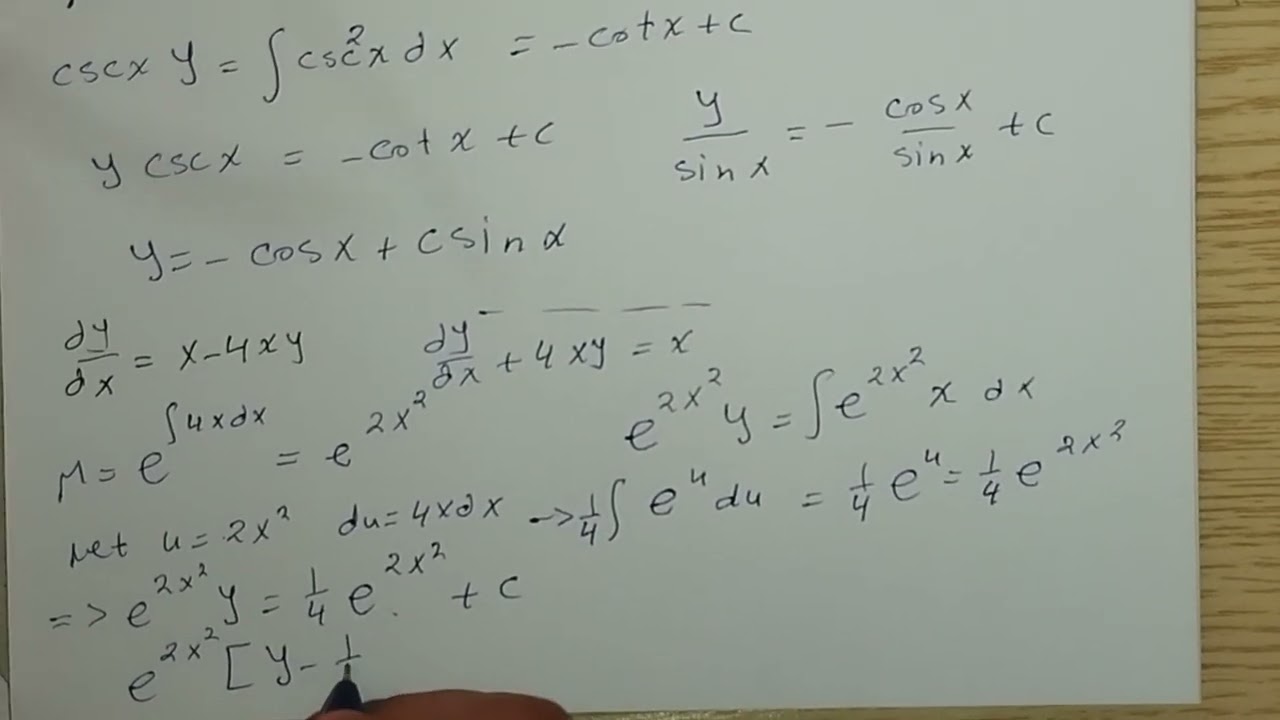 cscx y = ∫ csc²x dx = -cotx + c
y cscx = -cot x + c
y/sin x = - cos x/sin x + c
y = - cos x + c sin x
dy/dx = x - 4xy
dy/dx + 4xy = x
μ = e^∫4xdx = e^2x²
e^2x² y = ∫ e^2x² x dx
let u = 2x² du = 4xdx -> 1/4 ∫ e^u du = 1/4 e^u = 1/4 e^2x²
=> e^2x² y = 1/4 e^2x² + c
e^2x² [ y - 1